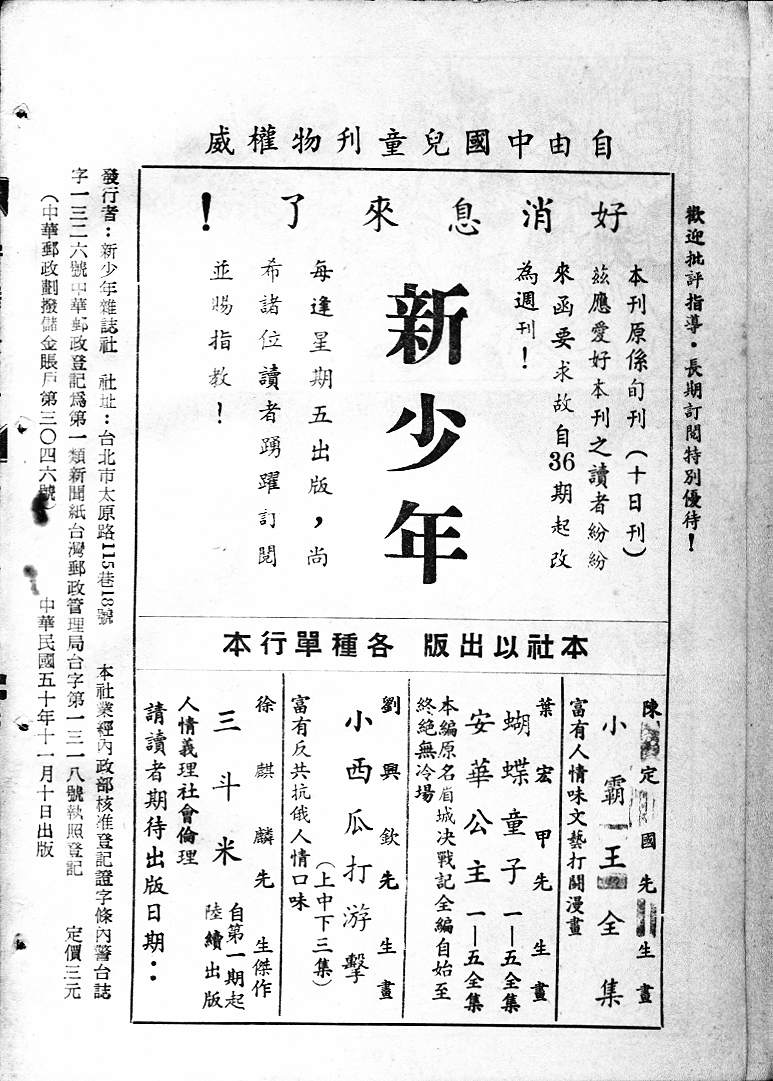 自由中國兒童刊物權威
歡迎批評指導・長期訂閱特別優待！
好消息來了！
本刊原係旬刊（十日刊）
茲應愛好本刊之讀者紛紛
來函要求故自36期起改
為週刊！
新少年
每逢星期五出版，尚
希諸位讀者踴躍訂閱
並賜指教！
本社以出版 各種單行本
陳定國先生畫
小霸王全集
富有人情味文藝打鬪漫畫
葉宏甲先生畫
蝴蝶童子 一—五全集
安華公主 一—五全集
本編原名眉城决戰記全編自始至
終絕無冷場
劉興欽先生畫
小西瓜打游擊
（上中下三集）
富有反共抗俄人情口味
徐麒麟先生傑作
三斗米 自第一期起
陸續出版
人情義理社會倫理
請讀者期待出版日期：
發行者：新少年雜誌社 社址：台北市太原路115巷18號 本社業經內政部核准登記證字條內警台誌
字一三二六號中華郵政登記爲第一類新聞紙台灣郵政管理局台字第一三一八號執照登記 定價三元
（中華郵政劃撥儲金賬戶第三〇四六號） 中華民國五十年十一月十日出版